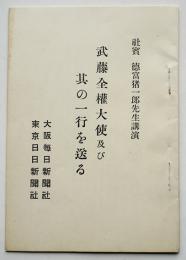 社賓 德富猪一郎先生講演
武藤全權大使及び
其の一行を送る
大阪每日新聞社
東京日日新聞社